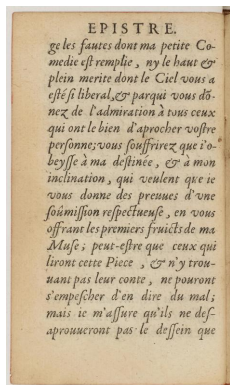 EPISTRE.
ge les fautes dont ma petite Co-
medie est remplie, ny le haut &
plein merite dont le Ciel vous a
esté si liberal, & par qui vous dõ-
nez de l'admiration à tous ceux
qui ont le bien d'aprocher vostre
personne; vous souffrirez que i'o-
beysse à ma destinée, & à mon
inclination, qui veulent que ie
vous donne des preuues d'vne
soûmission respectueuse, en vous
offrant les premiers fruicts de ma
Muse; peut-estre que ceux qui
liront cette Piece, & n'y trou-
uant pas leur conte, ne pouront
s'empescher d'en dire du mal;
mais ie m'assure qu'ils ne des-
aprouueront pas le dessein que